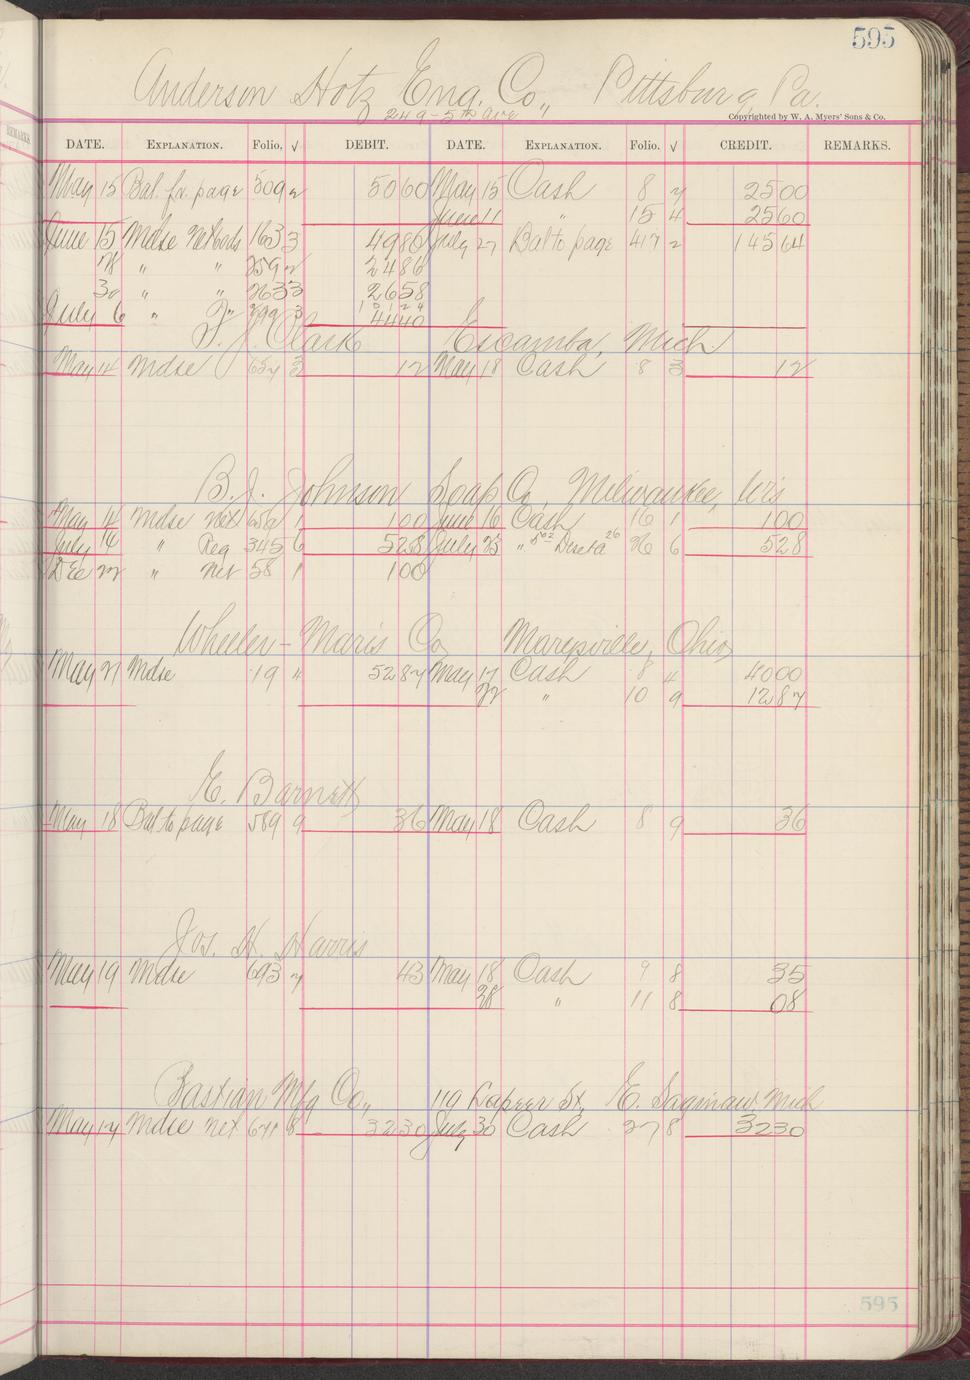 595
Anderson Hotz Eng. Co., Pittsburg, Pa.
249-5th Ave
Copyrighted by W. A. Myers' Sons & Co.
DATE. EXPLANATION. Folio. √ DEBIT. DATE. EXPLANATION. Folio. √ CREDIT. REMARKS.
May 15 Bal. fr. page 509 2 5060 May 15 Cash 8 7 2500
June 11 " 15 4 2560
June 15 Mdse Net 163 3 4980 July 27 Bal to page 417 2 14564
" " 259 2 2486
30 " " 2633 2658
July 6 " " 299 3 4440
T. J. Clark Escanaba, Mich
May 14 Mdse 3 12 May 18 Cash 8 3 12
B. J. Johnson Soap Co, Milwaukee, Wis
May 14 Mdse Net 656 1 100 June 16 Cash 16 1 100
July 14 " Reg 345 6 528 July 25 " 26 6 528
Dec 22 " Net 58 1 100
Wheeler-Maris Co, Marysville, Ohio
May 21 Mdse 19 " 5287 May 17 Cash 8 4 4000
22 " 10 9 1287
E. Barnett
May 18 Bal to page 589 9 36 May 18 Cash 8 9 36
Jos. H. Harris
May 19 Mdse 693 7 43 May 18 Cash 9 8 35
28 " 11 8 08
Bastian Mfg Co., 119 Lapeer St, E. Saginaw Mich
May 14 Mdse Net 671 8 3230 July 30 Cash 27 8 3230
595